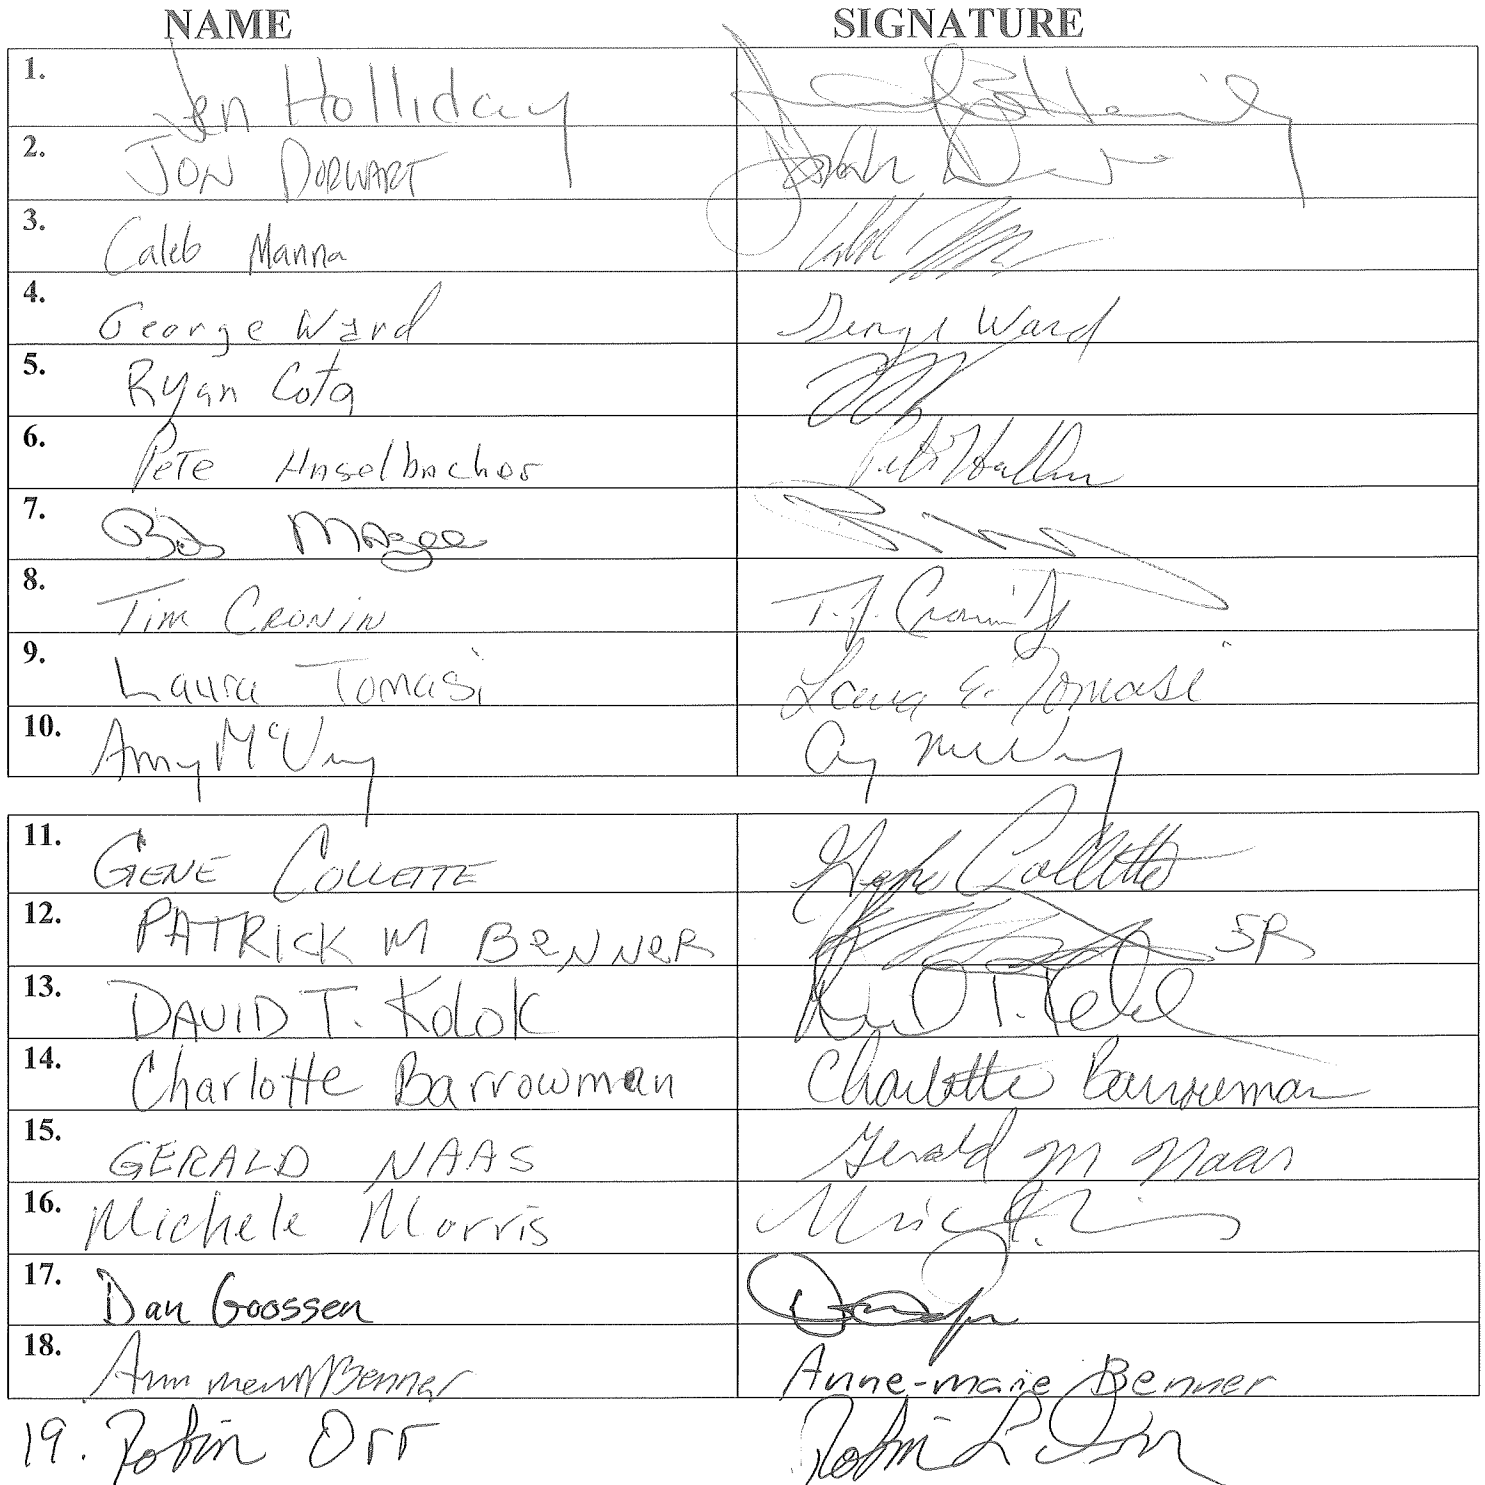 NAME SIGNATURE
1. Jen Holliday
2. JON DORWART
3. Caleb Manna Caleb
4. George Ward George Ward
5. Ryan Cota
6. PeTe Haselbacher
7. Bob Magee
8. Tim CRONIN T.J. Cronin Jr
9. Laura Tomasi Laura E. Tomasi
10. Amy McVey Amy McVey
11. GENE COLLETTE Gene Collette
12. PATRICK M BeNNeR SR
13. DAVID T. Kolok David T. Kolok
14. Charlotte Barrowman Charlotte Barrowman
15. GERALD NAAS Gerald M Naas
16. Michele Morris
17. Dan Goossen
18. Benner Anne-marie Benner
19. Robin Orr Robin L Orr